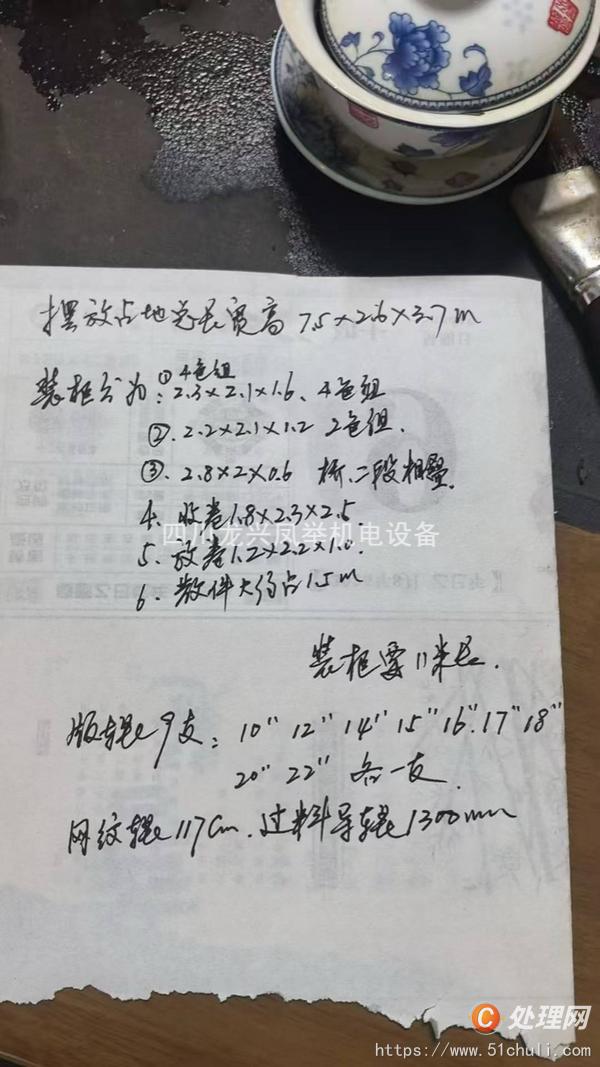 摆放占地总长宽高 7.5×2.6×3.7m
①4色组
装柜分为:2.3×2.1×1.6、4色组
②.2.2×2.1×1.2 2色组.
③.2.8×2×0.6 桥、二段相叠.
4、收卷1.8×2.3×2.5.
四川龙兴凤举机电设备
5、放卷1.2×2.2×1.6.
6、散件大约占1.5m
装柜要11米长.
版辊9支: 10" 12" 14" 15" 16".17" 18"
20" 22" 各一支.
网纹辊117cm.过料导辊1300mm
C 处理网
https://www.51chuli.com